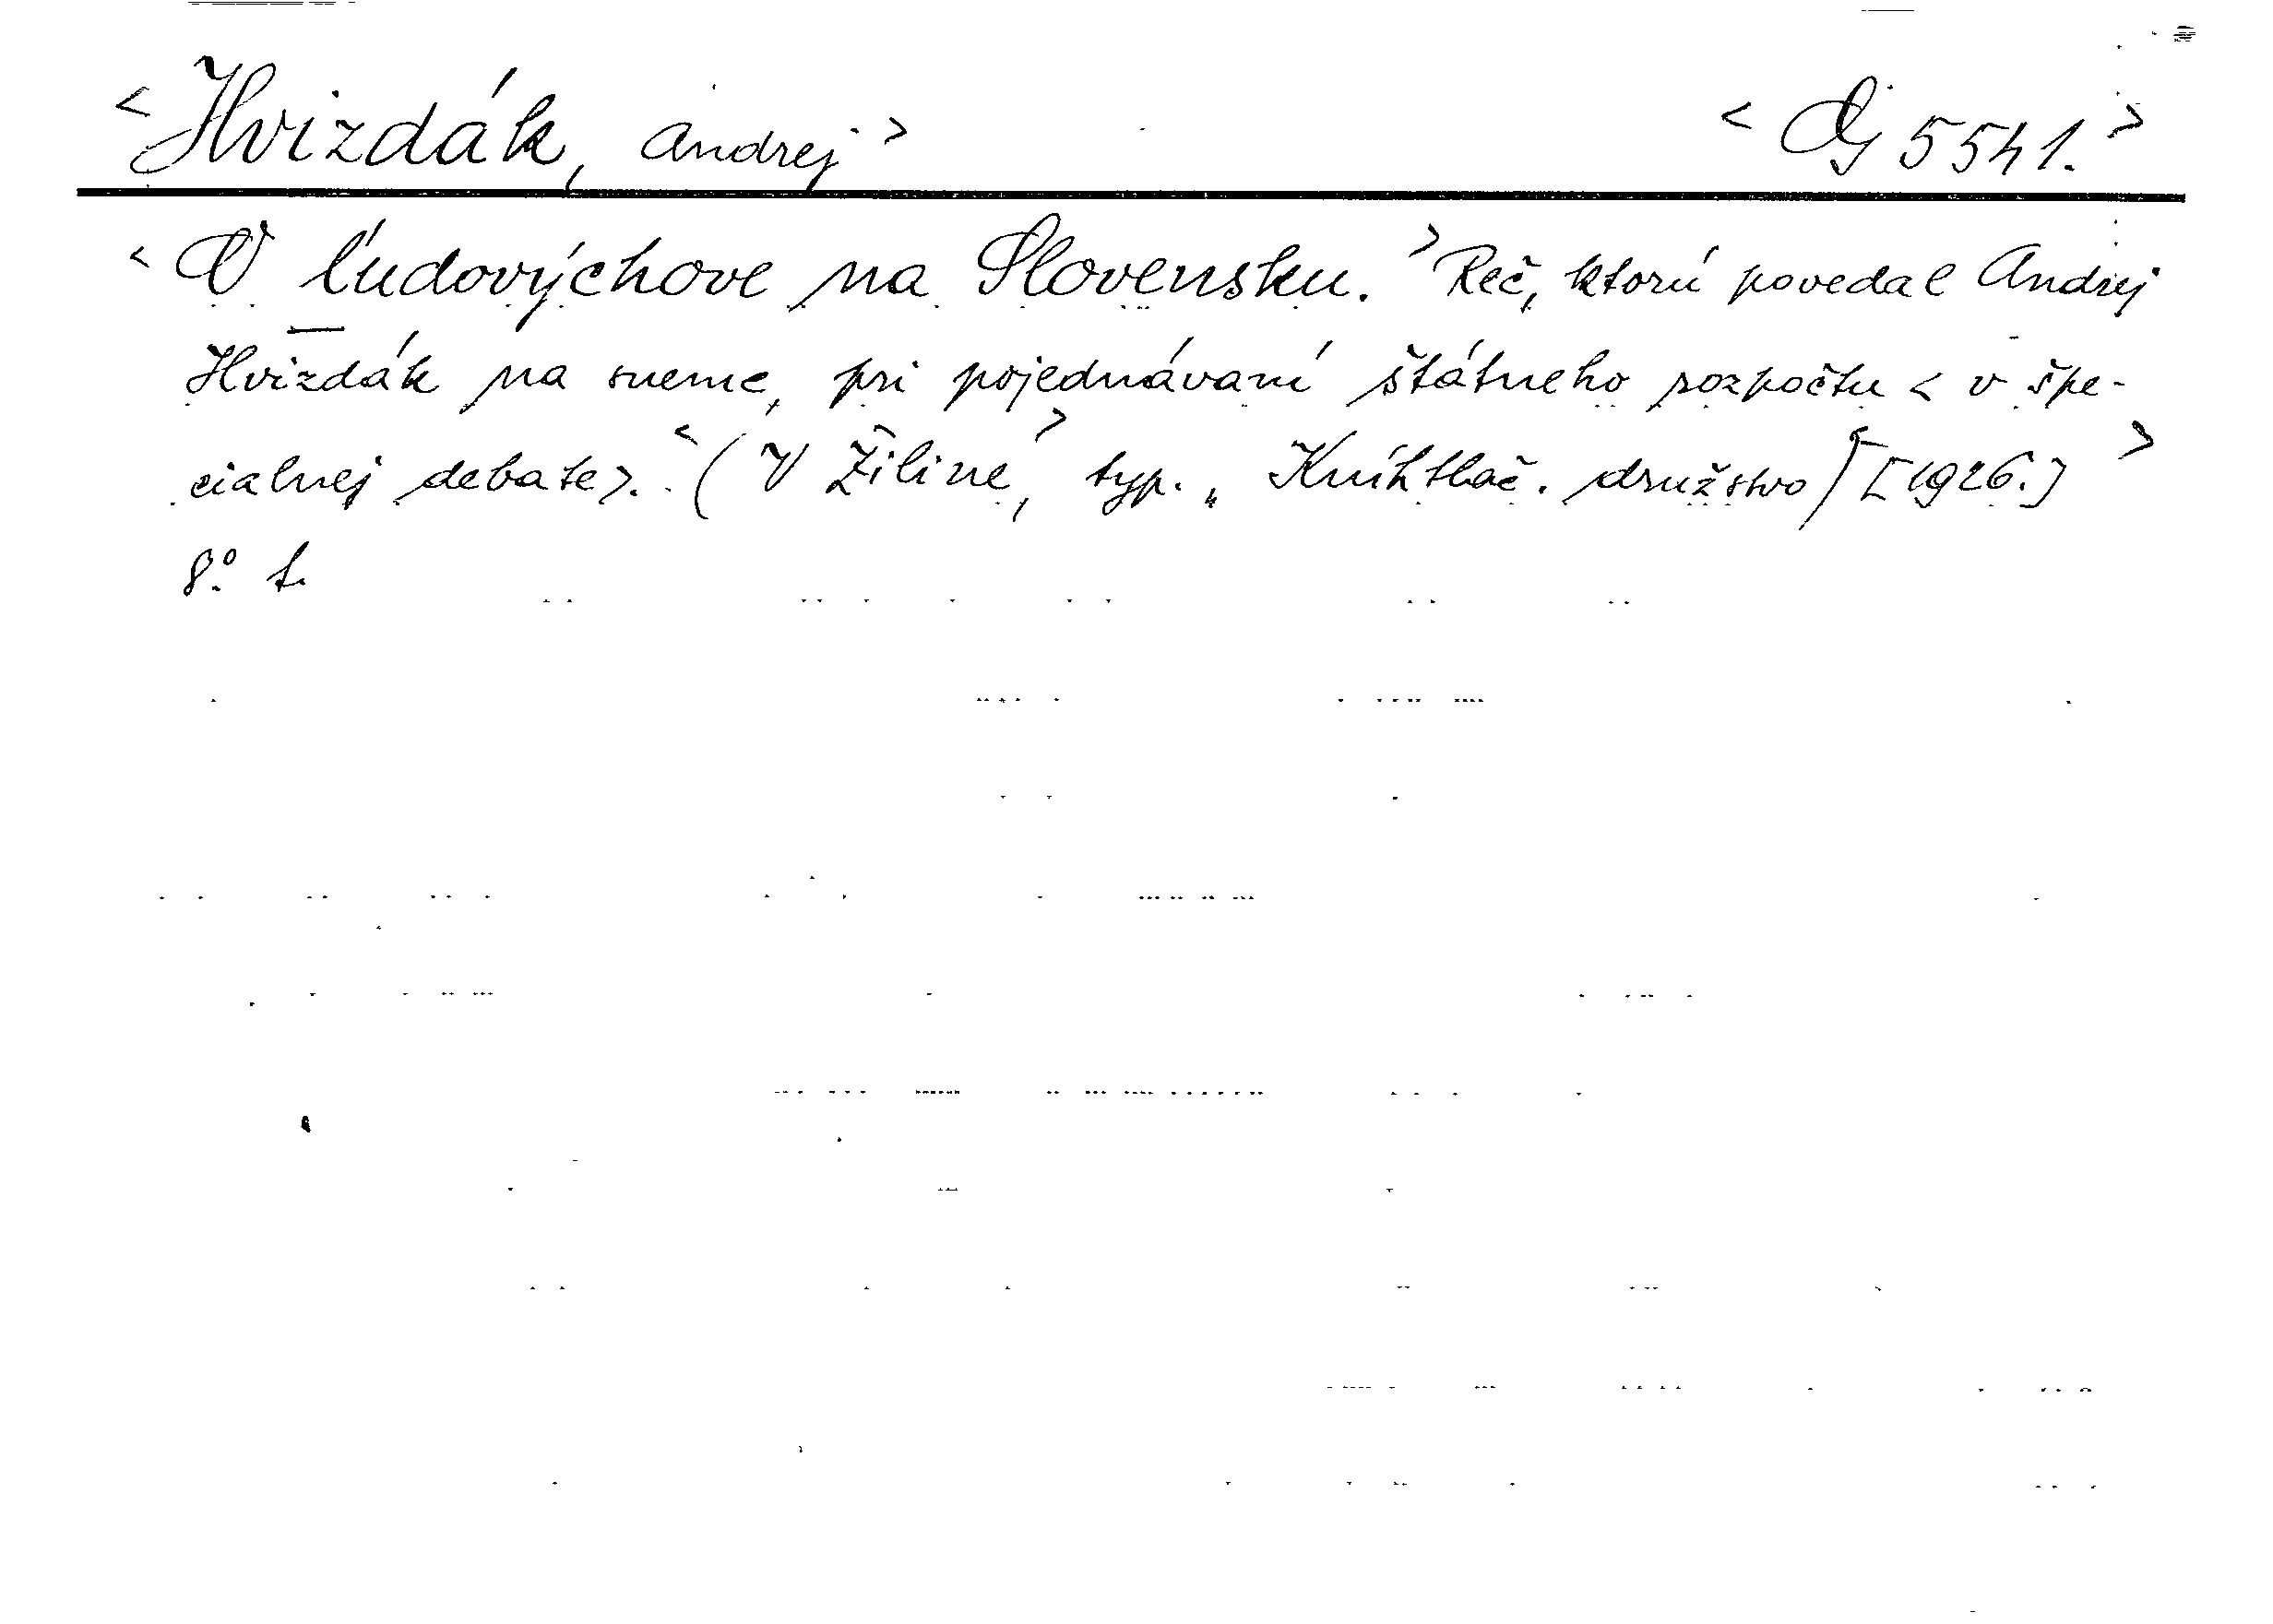 <Hvizdák, Andrej> <Dg 5541.>
<O ľudovýchove na Slovensku.> Reč, ktorú povedal Andrej
Hvizdák na sneme, pri pojednávaní štátneho rozpočtu < v špe-
cialnej debate>. <(V Žiline,> typ. „Kníhtlač. družstvo) [1926.]>
8°. t.